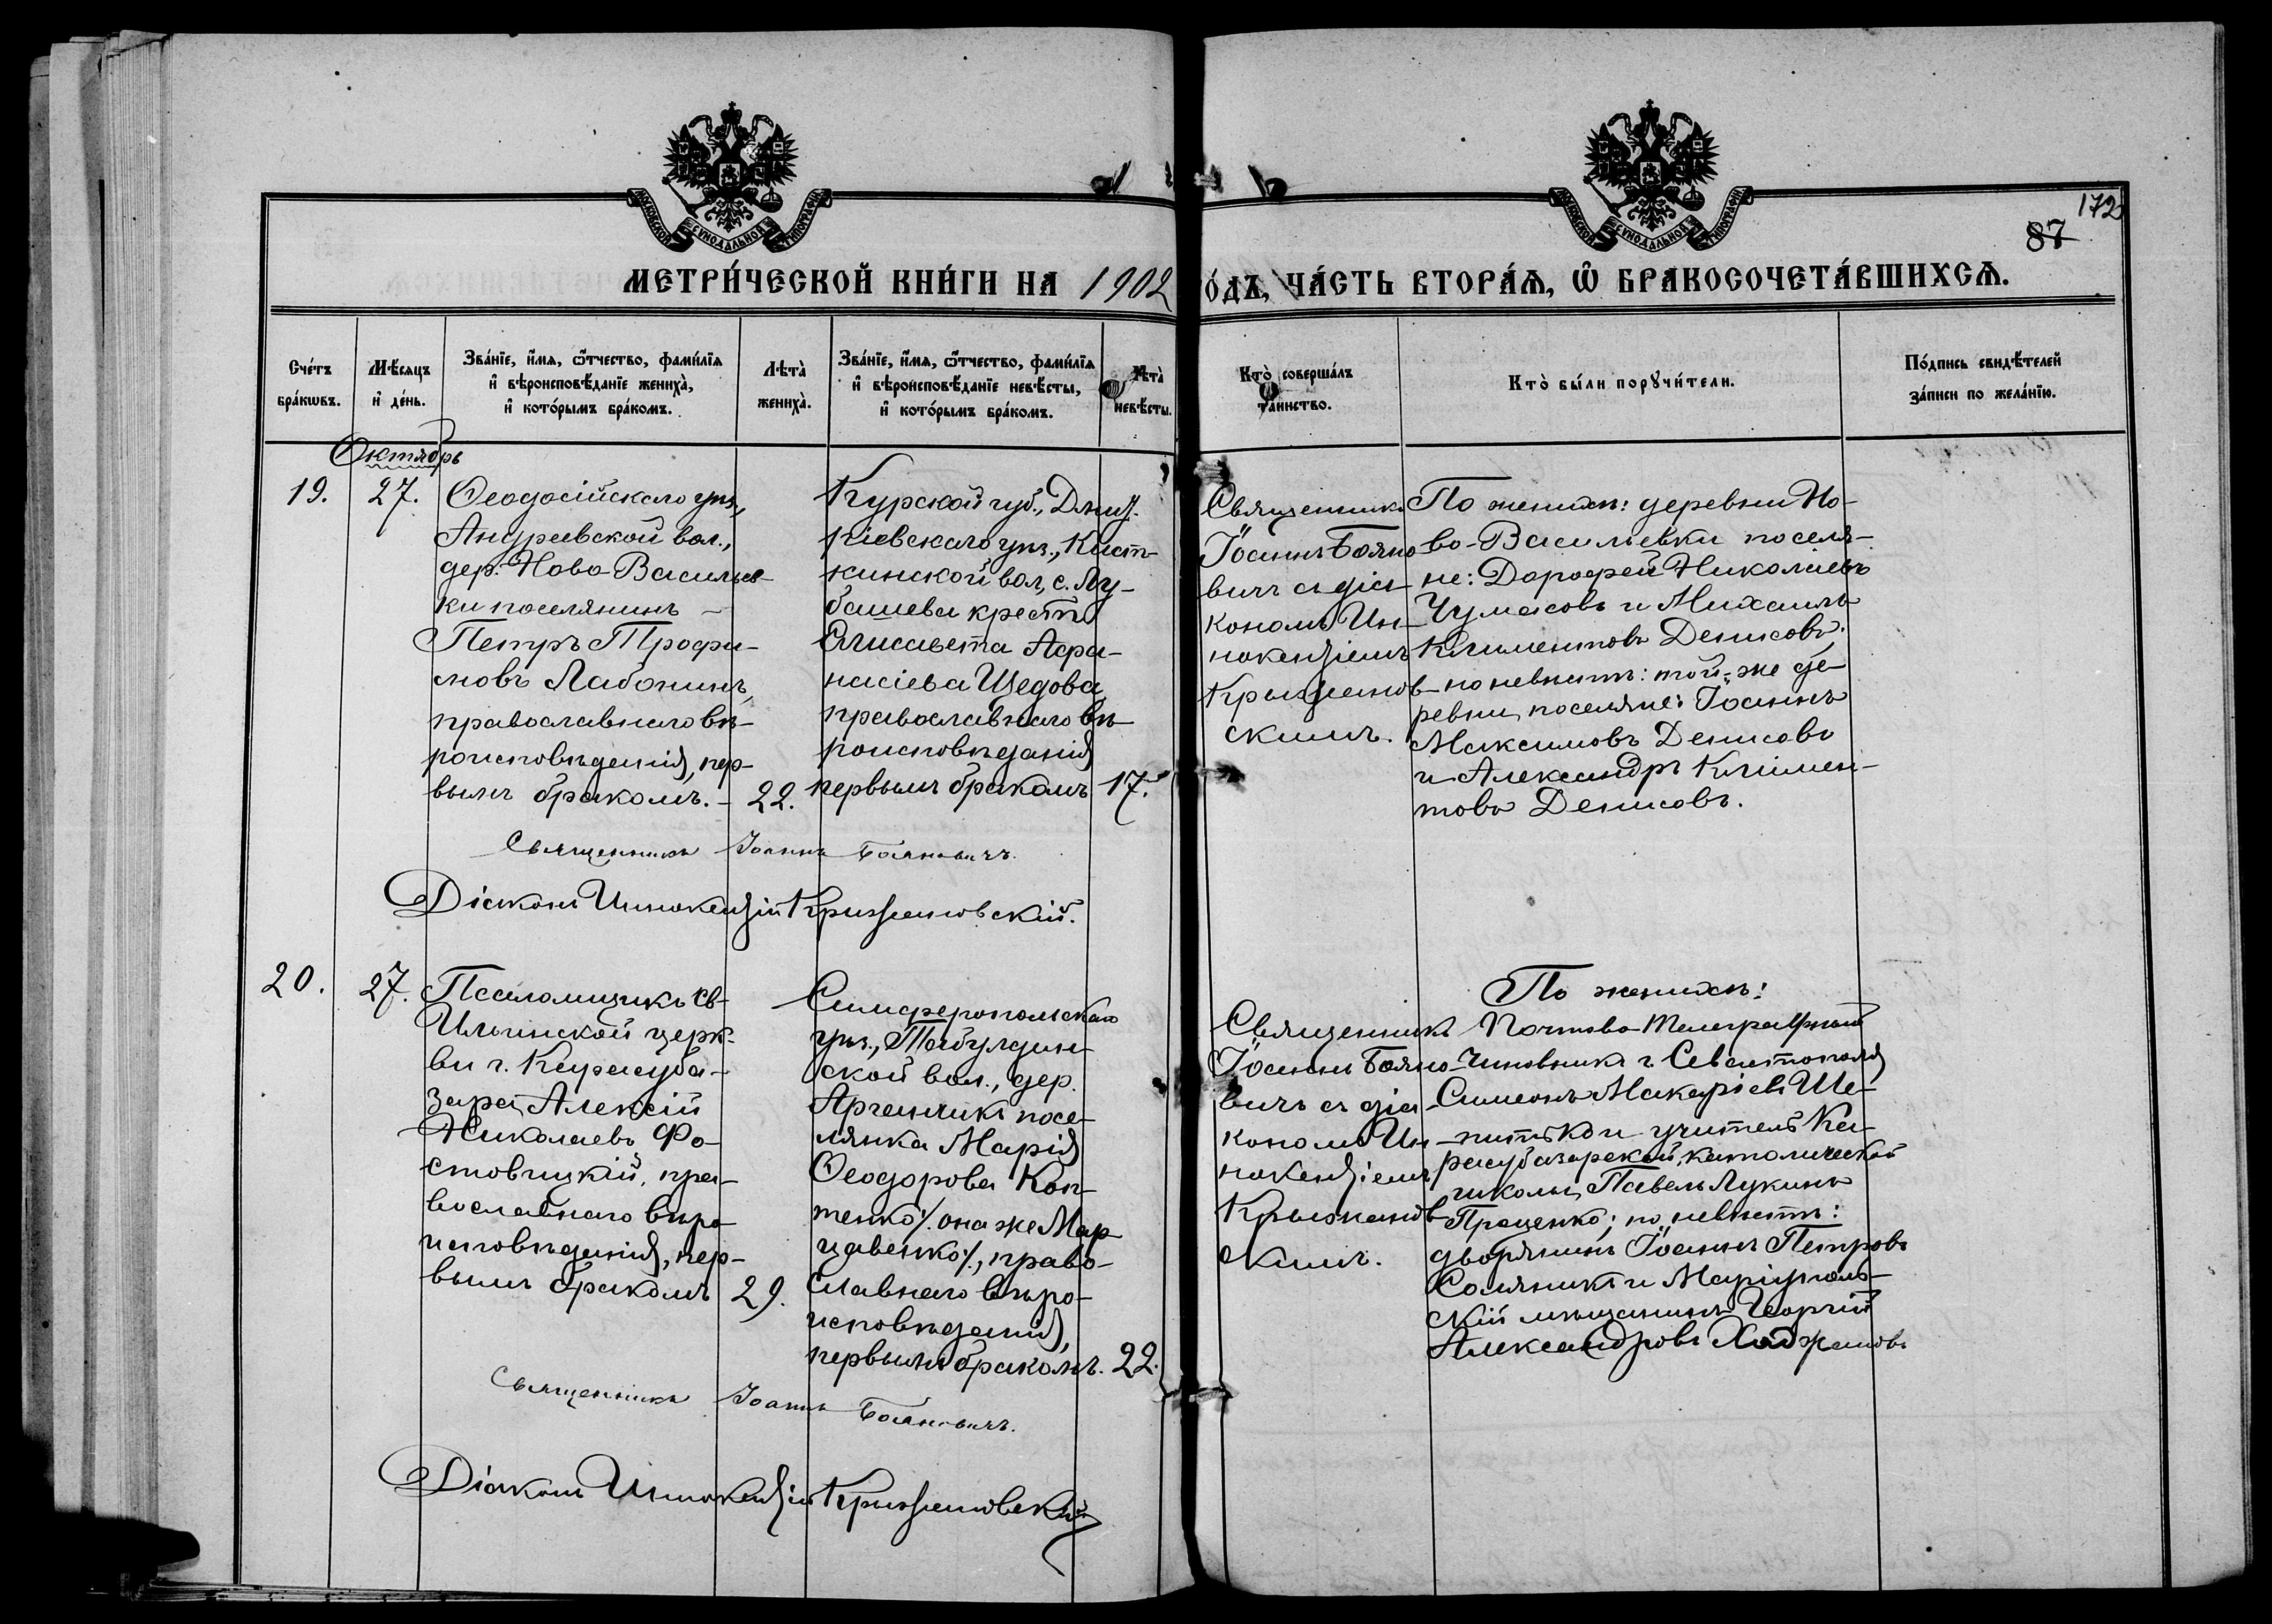 172
87
МЕТРИ́ЧЕСКОЙ КНИ́ГИ НА 1902
О́ДЪ, ЧА́СТЬ ВТОРА́Ѧ, Ѿ БРАКОСОЧЕТА́ВШИХСѦ.
МОСКОВСКОЙ СѴНОДАЛЬНОЙ ТИПОГРАФІИ
МОСКОВСКОЙ СѴНОДАЛЬНОЙ ТИПОГРАФІИ
Сче́тъ
бра́кѡвъ.
Мѣ́сяцъ
и҆ де́нь.
Зва́нїе, и҆́мѧ, ѻ҆́тчество, фами́лїѧ
и҆ вѣроисповѣ́данїе жениха̀,
и҆ кото́рымъ бра́комъ.
Лѣта̀
жениха̀.
Зва́нїе, и҆́мѧ, ѻ҆́тчество, фами́лїѧ
и҆ вѣроисповѣ́данїе невѣ́сты,
и҆ кото́рымъ бра́комъ.
Лѣта̀
невѣ́сты.
Кто̀ соверша́лъ
та́инство.
Кто̀ бы́ли порꙋчи́тели.
По́дпись свидѣ́телей
за́писи по жела́нїю.
Октябрь
19.
27.
Ѳеодосійскаго уѣз.,
Андреевской вол.,
дер. Ново Васильев-
ки поселянинъ –
Петръ Трофи-
мовъ Лабонинъ,
православнаго вѣ-
роисповѣданія, пер-
вымъ бракомъ. –
22.
Курской губ., Дмит-
ріевскаго уѣз.,
кинской вол., с. Лу-
башева крест.
Елисавета Афа-
насіева Щедова,
православнаго вѣ-
роисповѣданія
первымъ бракомъ
17.
Священникъ
Іоаннъ Бояно-
вичъ съ діа-
кономъ Ин-
нокентіемъ
Крыжанов-
скимъ.
По женихѣ: деревни Но-
во-Васильевки поселя-
не: Дорофей Николаевъ
Чумасовъ и Михаилъ
Климентовъ Денисовъ;
по невѣстѣ: той-же де-
ревни, поселяне: Іоаннъ
Максимовъ Денисовъ
и Александръ Климен-
товъ Денисовъ.
Священникъ Іоаннъ Бояновичъ.
Діаконъ Иннокентій Крыжановскій.
20.
27.
Псаломщикъ Св-
Ильинской церк-
ви г. Карасуба-
зара, Алексій
Николаевъ Фо-
стовицкій, пра-
вославнаго вѣро-
исповѣданія, пер-
вымъ бракомъ
29.
Симферопольскаго
уѣз., Табулдин-
ской вол., дер.
Аргинчикъ посе-
лянка Марія
Ѳеодорова Коп-
тенко /. она же Мар-
цавенко /., право-
славнаго вѣро-
исповѣданія,
первымъ бракомъ.
22.
Священникъ
Іоаннъ Бояно-
вичъ съ діа-
кономъ Ин-
нокентіемъ
Крыжанов-
скимъ.
По женихѣ:
Почтово-Телеграфный
чиновникъ г. Севастополя
Симеонъ Макаріевъ Ше-
питько и учитель Ка-
расубазарской, католической
школы, Павелъ Лукинъ
Проценко; по невѣстѣ:
дворянинъ Іоаннъ Петровъ
Соляникъ и Маріуполь-
скій мѣщанинъ Георгій
Александровъ Хаджиновъ
Священникъ Іоаннъ Бояновичъ.
Діаконъ Иннокентій Крыжановскій